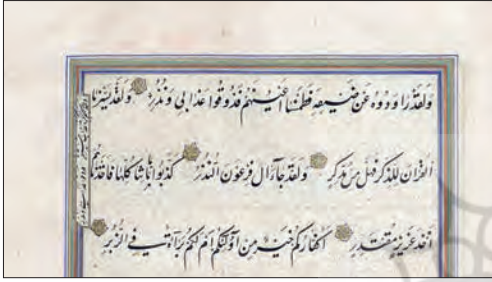 وَلَقَدْ رَاوَدُوهُ عَنْ ضَيْفِهِ فَطَمَسْنَا أَعْيُنَهُمْ فَذُوقُوا عَذَابِي وَنُذُرِ وَلَقَدْ يَسَّرْنَا
القُرْآنَ لِلذِّكْرِ فَهَلْ مِنْ مُدَّكِرٍ وَلَقَدْ جَاءَ آلَ فِرْعَوْنَ النُّذُرُ كَذَّبُوا بِآيَاتِنَا كُلِّهَا فَأَخَذْنَاهُمْ
أَخْذَ عَزِيزٍ مُقْتَدِرٍ أَكُفَّارُكُمْ خَيْرٌ مِنْ أُولَئِكُمْ أَمْ لَكُمْ بَرَاءَةٌ فِي الزُّبُرِ